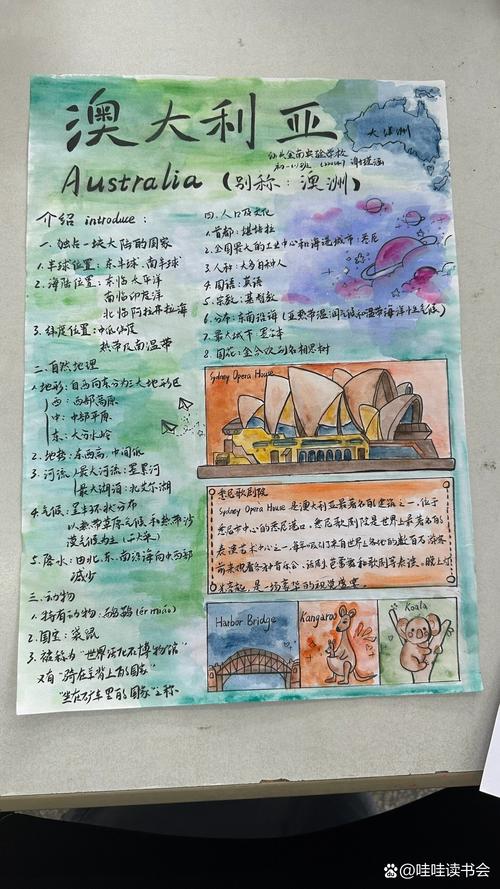 澳大利亚
大洋洲
汕头金南实验学校
Australia (别称:澳洲)
介绍 introduce:
一、独占一块大陆的国家
1.半球位置:东半球、南半球
2.海陆位置:东临太平洋
南临印度洋
北临阿拉弗拉海
3.纬度位置:中低纬度
热带及南温带
二、自然地理
1.地形:自西向东分为三大地形区
西:西部高原
中:中部平原
东:大分水岭
2.地势:东西高,中间低
3.河流:最大河流:墨累河
最大湖泊:北艾尔湖
4.气候:呈半环状分布
以热带草原气候和热带沙
漠气候为主
5.降水:由北、东、南沿海向中西部
减少
三、动物
1.特有动物:鸸鹋(ér miáo)
2.国宝:袋鼠
3.被称为“世界活化石博物馆”
又有“骑在羊背上的国家”
“坐在矿车里的国家”之称。
四、人口及文化
1.首都:堪培拉
2.全国最大的工业中心和海港城市:悉尼
3.人种:大多白种人
4.国语:英语
5.宗教:基督教
6.分布:东南沿海(亚热带湿润气候和温带海洋性气候)
7.最大城市
8.国花:金合欢
Sydney Opera House
悉尼歌剧院
Sydney Opera House 是澳大利亚最著名的建筑之一,位于
悉尼市中心的悉尼港口,悉尼歌剧院是世界上最著名的
表演艺术中心之一,每年吸引来自世界上各地的数百万游客
前来观看各种音乐会、话剧、芭蕾和歌剧等表演,晚上灯
光亮起,是一场豪华的视觉盛宴
Harbor Bridge
Kangaroo
Koala
@哇哇读书会